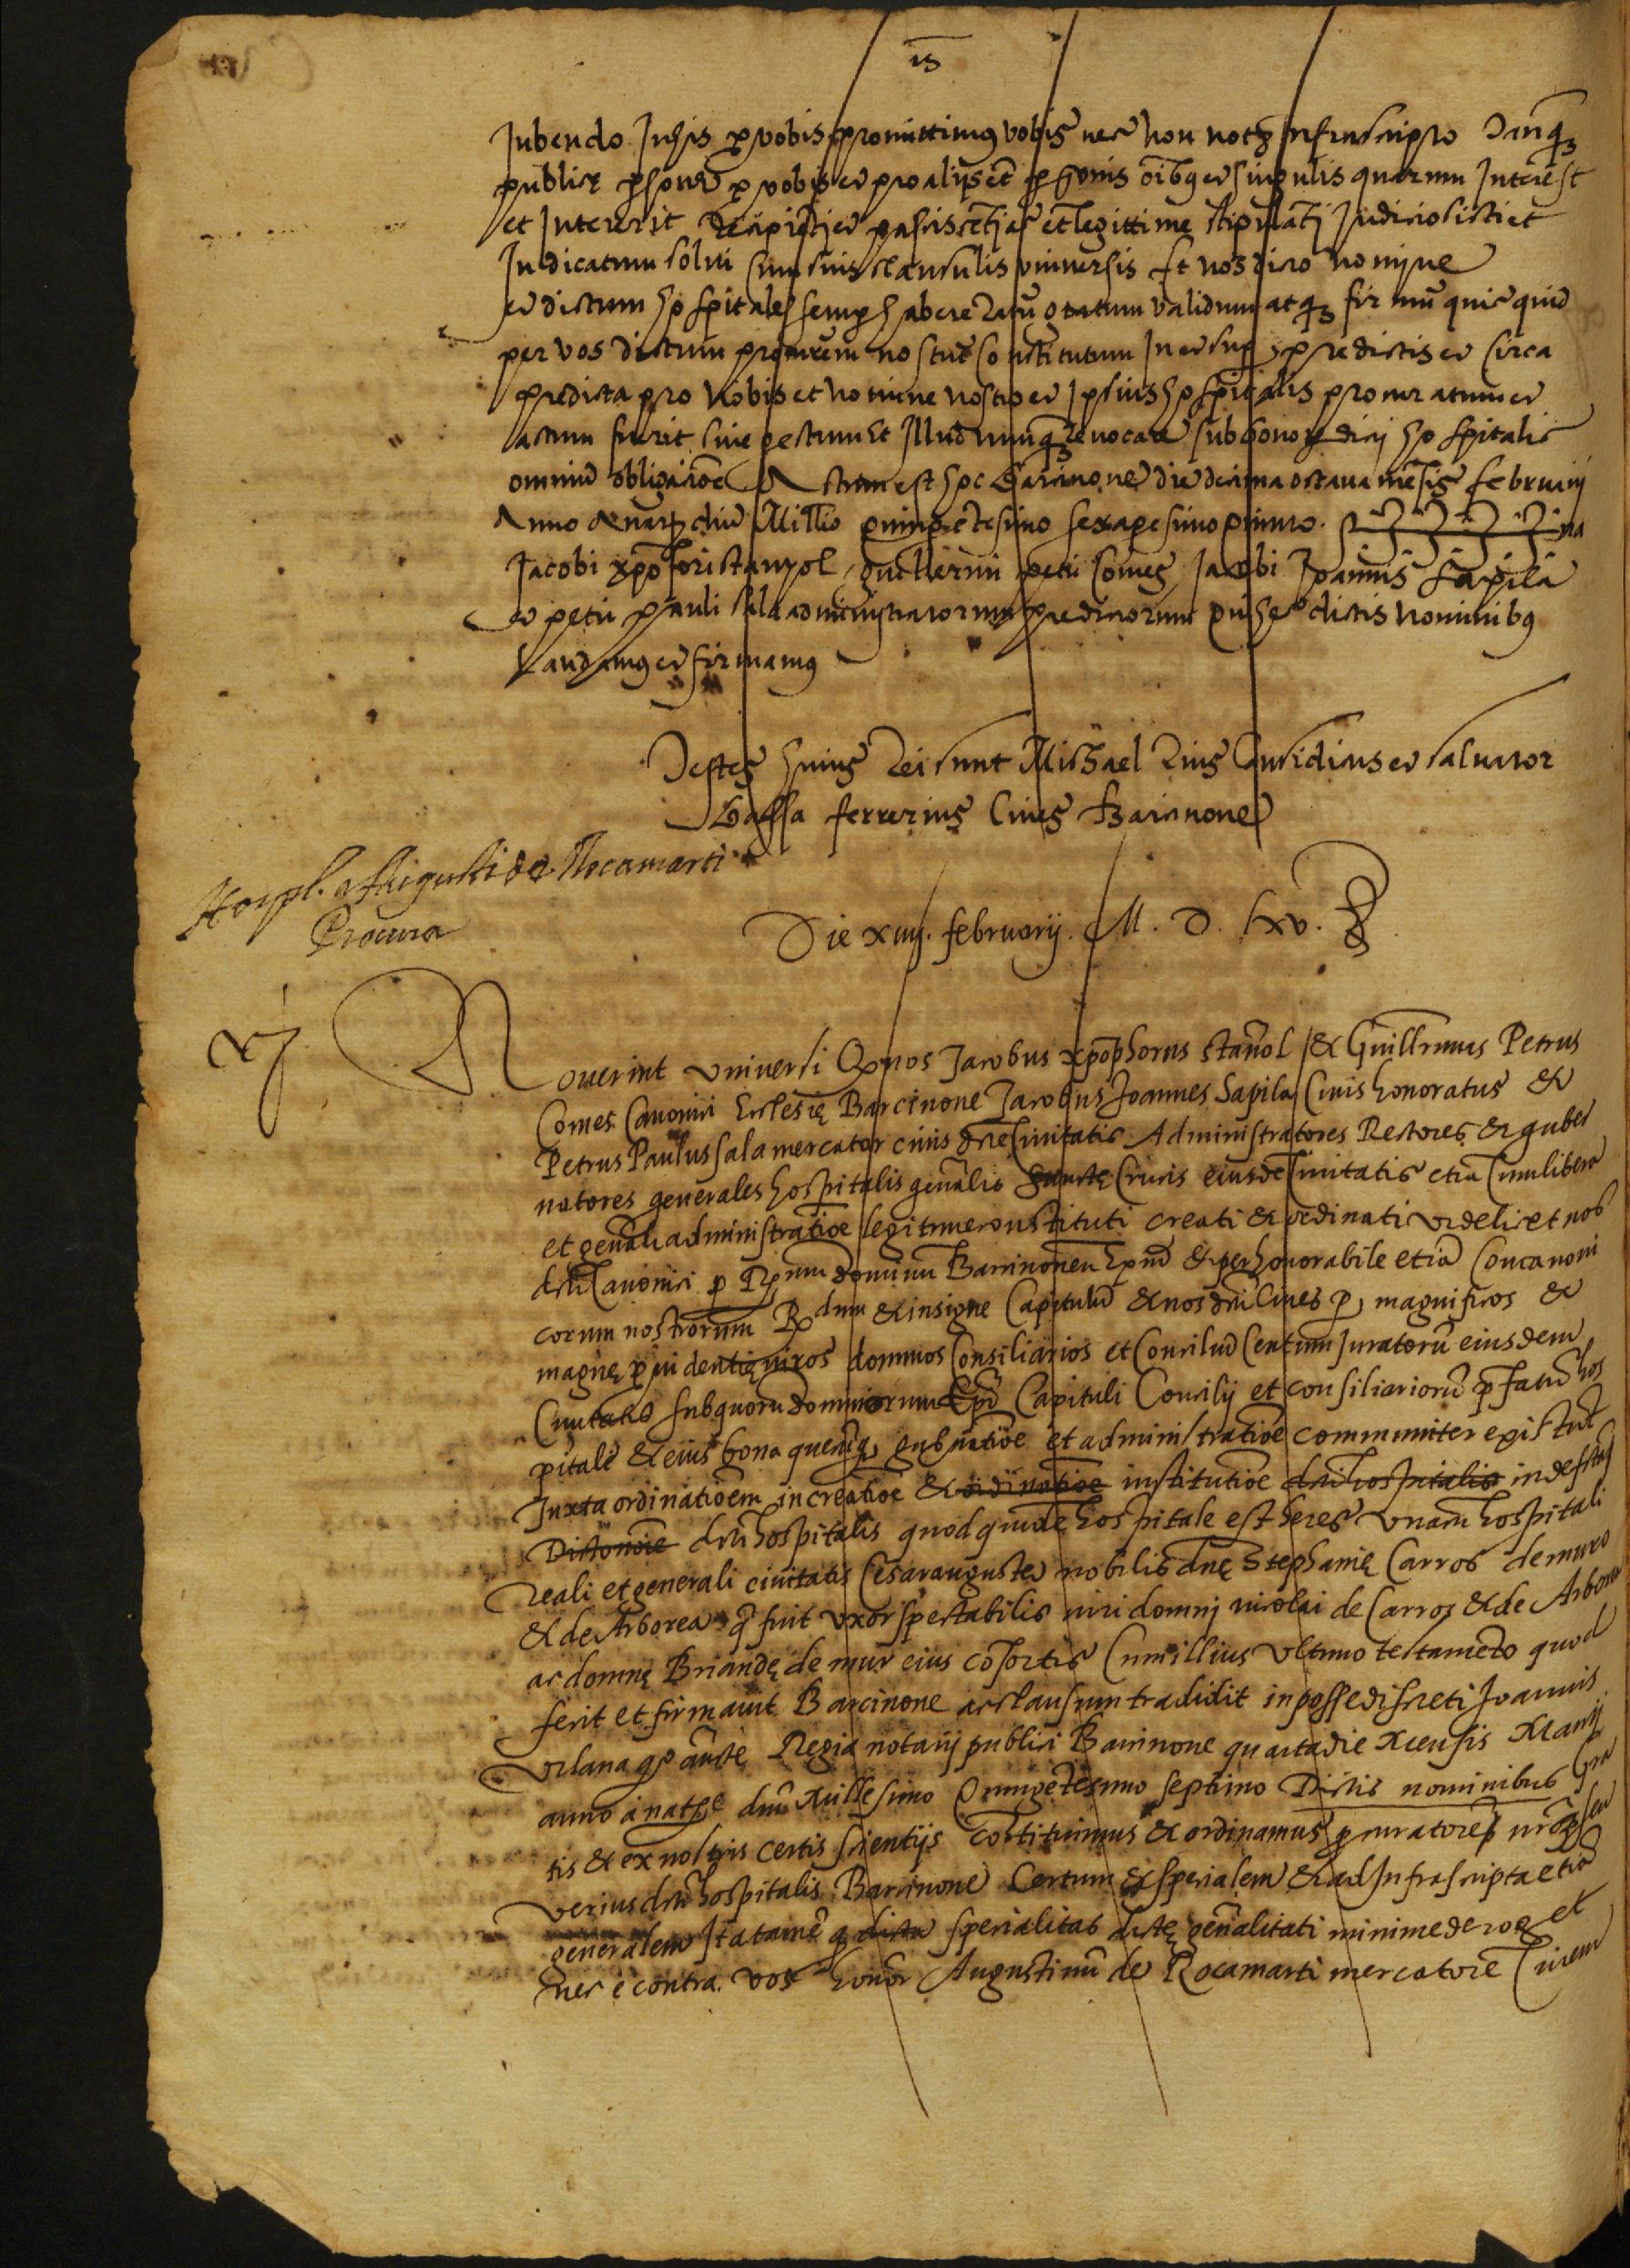 Jubendo Juris p vobis promittimus vobis nec non noto Infrascripto Tanq
publicę psone p vobis et pro alijs et psonis oibus et singulis quorum Interest
et Intererit Recipienti et paciscenti ac et legittime stipulanti Judicio sisti et
Judicatum solui cum suis clausulis vniuersis Et nos dicto nomine
et dictum hospitale semp habere Ratu gratum validum atq firmu quicquid
per vos dictum procurem nostru constitutum In et sup predictis et circa
predicta pro Nobis et nomine nostro et Ipsius hospitalis procuratum et
actum fuerit siue gestum Et Illud nunq Reuocare sub bonor dicti hospitalis
omniu obligatioe Actum est hoc Barcinone die decima octaua mesis februarij
Anno a natte dni Millio quingetesimo sexagesimo primo. na
Jacobi xpofori stanyol guillermi petri Comes Jacobi Joannis sapila
et petri pauli sala administratorum predictorum qui hec dictis nominibus
Laudamus et firmamus
Testes huius Rei sunt Michael Rius Causidicus et saluator
Bassa ferrerius Ciues Barcinone
Hospl. Augusti de Rocamarti
Procura
Die xiiij. februarij. M. D. lxv.
Nouerint vniuersi Q nos Jacobus xpophorus stanol / & Guillrmus Petrus
Comes Canonici Ecclesię Barcinone Jacobus Joannes Sapila Ciuis honoratus &
Petrus Paulus sala mercator ciuis dicte Ciuitatis Administratores Rectores & guber
natores generales hospitalis genalis Sanctę Crucis eiusde Ciuitatis etia Cum libera
et genali administratioe legitime constituti creati & ordinati videlicet nos
dicti Canonici p Rnum dominum Barcinonen Epum & per honorabile etia Concanoni
corum nostrorum Rdum & insigne Capitulu & nos dicti Ciues p magnificos &
magnę puidentię viros dominos Consiliarios et Consiliu Centum Juratoru eiusdem
Ciuitatis sub quoru dominorum Epi Capituli Consilij et consiliarioru pfatu hos
pitale & eius bona quecuq gubnatioe et administratioe communiter existut
Juxta ordinatioem in creatioe & ordinatioe institutioe dicti hospitalis
dicti hospitalis quod quide hospitale est heres vnacu hospitali
reali et generali ciuitatis Cesarauguste nobilis dnę Stephanię Carros de muro
& de Arborea q fuit vxor spectabilis viri domni nicolai de Carros & de Arborea
ac domnę Briandę de mur eius cosortis Cum illius vltimo testameto quod
fecit et firmauit Barcinone ac clausum tradidit in posse discreti Joannis
vilana qo aucte Regia notarij publici Barcinone quarta die Mensis Marcij
anno a natte dni Millesimo Quingetesimo septimo Dictis nominibus Gra
tis & ex nostris certis scientijs costituimus & ordinamus pcuratore nrm seu
verius dicti hospitalis Barcinone Certum & specialem & ad Infrascripta etia
generalem Ita tame q dicta specialitas dictę genalitati minime deroget
nec e contra vos honor Augustinu de Rocamarti mercatore Ciuem